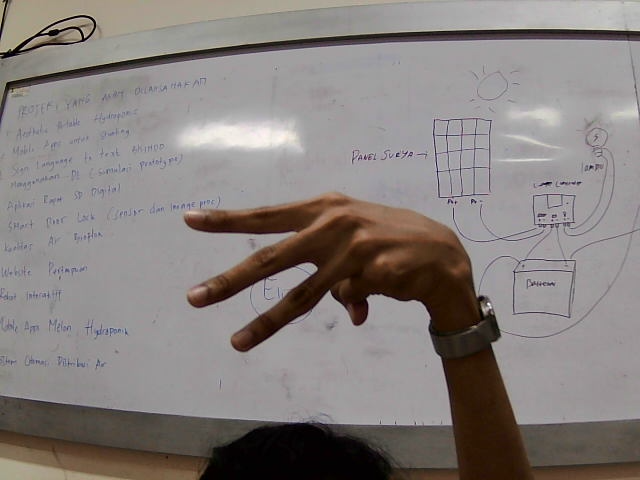 PROJEK YANG AKAN DILAKSANAKAN
Aesthetic Portable Hydroponic
Mobile Apps untuk Stunting
Sign Language to text BISINDO
Menggunakan DL (Simulasi prototype)
Aplikasi Rapor SD Digital
Smart Door Lock (sensor dan image proc)
Kualitas Air Bioflok
Website
Robot Interaktif
Mobile Apps Melon Hydroponik
Sistem Otomasi Distribusi Air
PANEL SURYA →
LAMPU
BATERAI